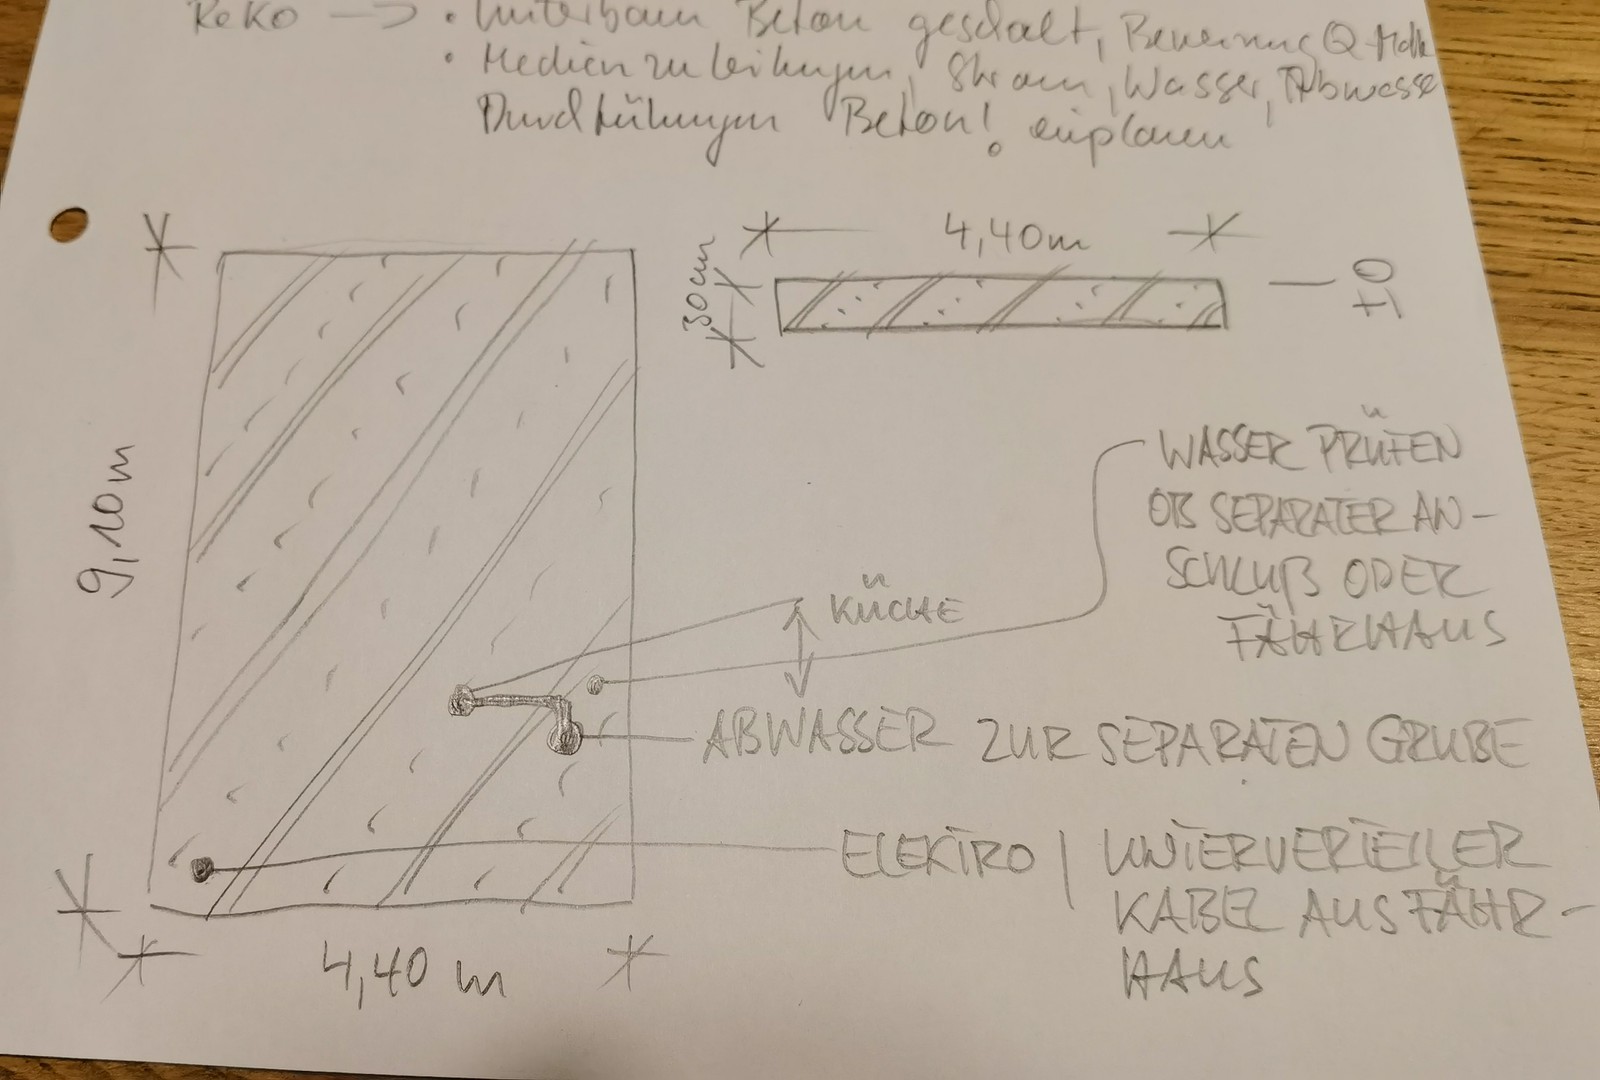 ReKo → • Unterbau Beton geschalt, Bewehrung Q-Matte
• Medienzuleitungen, Strom, Wasser, Abwasser
Durchführungen Beton! einplanen
4,40m
30cm
±0
9,10m
WASSER PRÜFEN
OB SEPARATER AN-
SCHLUß ODER
FÄHRHAUS
KÜCHE
ABWASSER ZUR SEPARATEN GRUBE
ELEKTRO | UNTERVERTEILER
KABEL AUS FÄHR-
HAUS
4,40 m